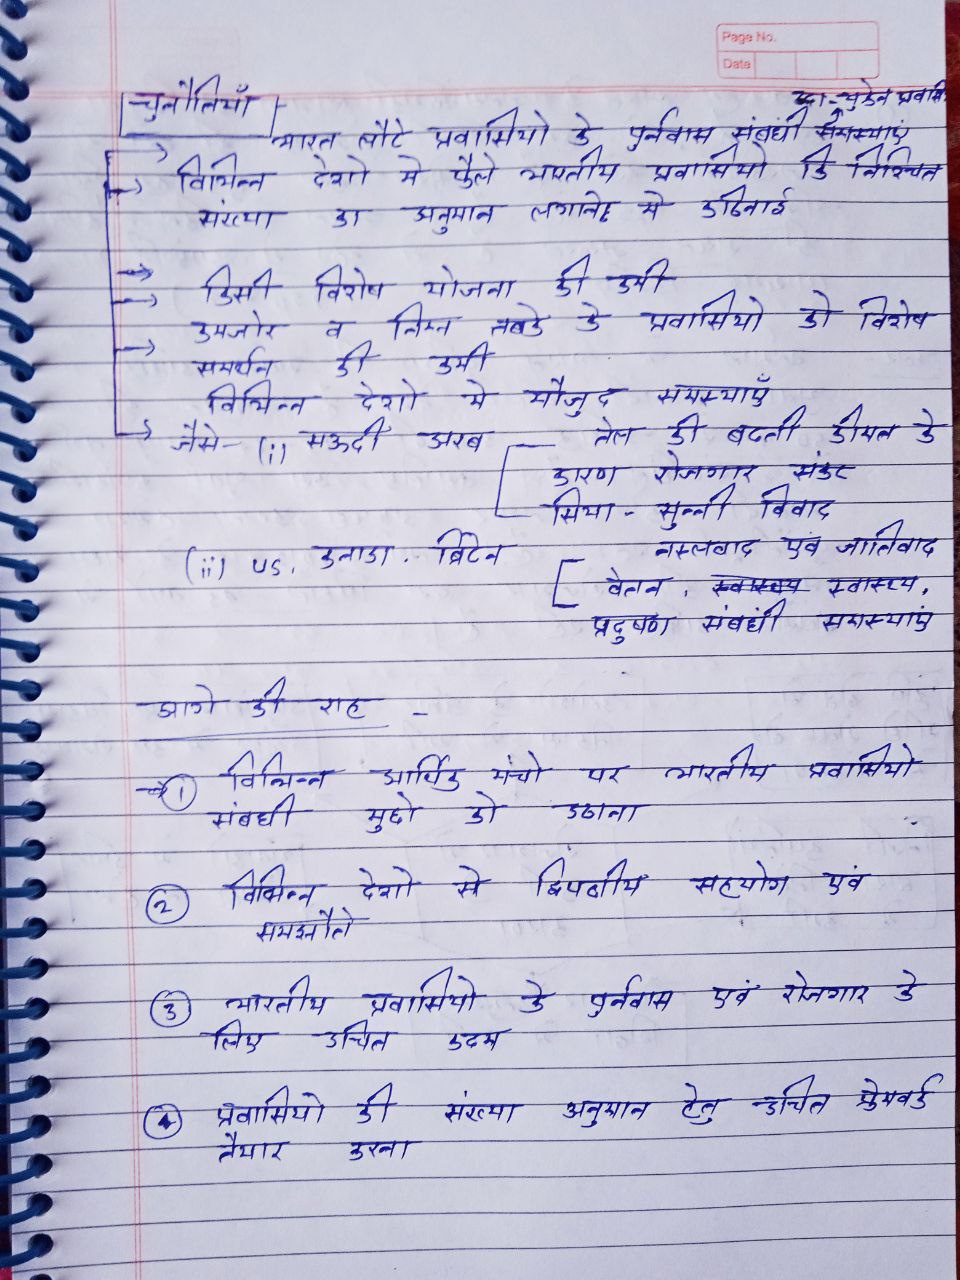 Page No.
Date
यथा - यूक्रेन प्रवासी
चुनौतियाँ
भारत लौटे प्रवासियो के पुर्नवास संबंधी समस्याएं
विभिन्न देशो मे फैले भारतीय प्रवासियो कि निश्चित
संख्या का अनुमान लगाने मे कठिनाई
किसी विशेष योजना की कमी
कमजोर व निम्न तबके के प्रवासियो को विशेष
समर्थन की कमी
विभिन्न देशो मे मौजुद समस्याएँ
जैसे- (i) सऊदी अरब - तेल की बढती कीमत के
कारण रोजगार संकट
सिया - सुन्नी विवाद
(ii) US, कनाडा, ब्रिटेन नस्लवाद एवं जातिवाद
वेतन, स्वास्थ्य स्वास्थ्य,
प्रदुषण संबंधी समस्याएं
आगे की राह -
① विभिन्न आर्थिक मंचो पर भारतीय प्रवासियो
संबधी मुद्दो को उठाना
② विभिन्न देशो से द्विपक्षीय सहयोग एवं
समझौते
③ भारतीय प्रवासियो के पुर्नवास एवं रोजगार के
लिए उचित कदम
④ प्रवासियो की संख्या अनुमान हेतु उचित फ्रेमवर्क
तैयार करना